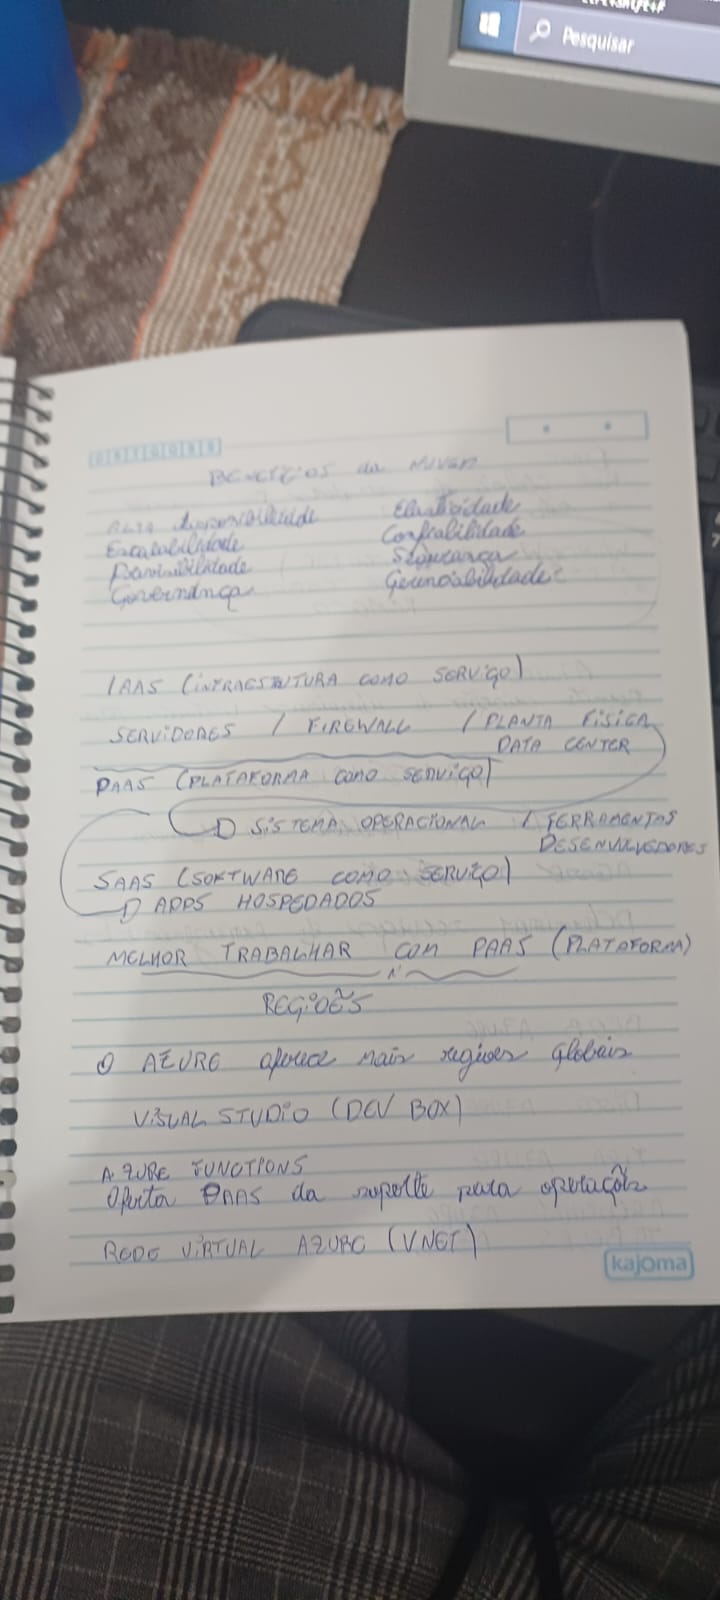 Ctrl+Shift+F
Pesquisar
BENEFÍCIOS da NUVEM
Alta disponibilidade Elasticidade
Escalabilidade Confiabilidade
Previsibilidade Segurança
Governança Gerenciabilidade
IAAS (INFRAESTUTURA COMO SERVIÇO)
SERVIDORES / FIREWALL / PLANTA FÍSICA
DATA CENTER
PAAS (PLATAFORMA COMO SERVIÇO)
SISTEMA OPERACIONAL / FERRAMENTAS
DESENVOLVEDORES
SAAS (SOFTWARE COMO SERVIÇO)
APPS HOSPEDADOS
MELHOR TRABALHAR COM PAAS (PLATAFORMA)
REGIOẼS
O AZURE oferece mais regioes Globais
VISUAL STUDIO (DEV BOX)
AZURE FUNCTIONS
Oferta PAAS da suporte para operaçoẽs
REDE VIRTUAL AZURE (VNET)
kajoma